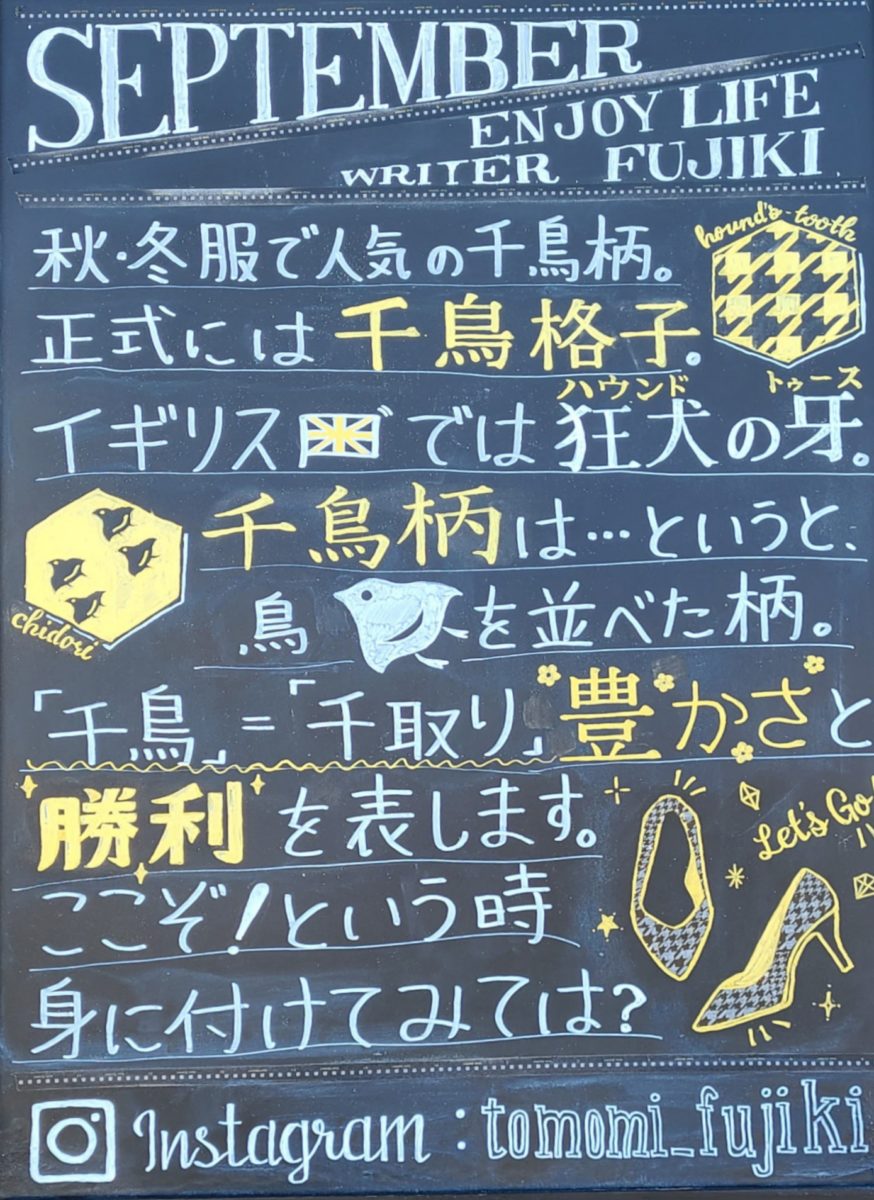 SEPTEMBER
ENJOY LIFE
WRITER FUJIKI
秋・冬服で人気の千鳥柄。
hound's-tooth
正式には千鳥格子。
ハウンド トゥース
イギリスでは狂犬の牙。
千鳥柄は…というと、
chidori
鳥を並べた柄。
「千鳥」=「千取り」豊かさと
勝利を表します。
Let's Go!
ここぞ!という時
身に付けてみては?
Instagram:tomomi_fujiki